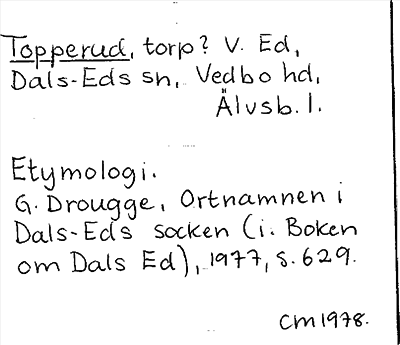 Topperud, torp? V. Ed,
Dals-Eds sn, Vedbo hd,
Älvsb. l.
Etymologi.
G. Drougge, Ortnamnen i
Dals-Eds socken (i. Boken
om Dals Ed), 1977, s. 629.
CM 1978.